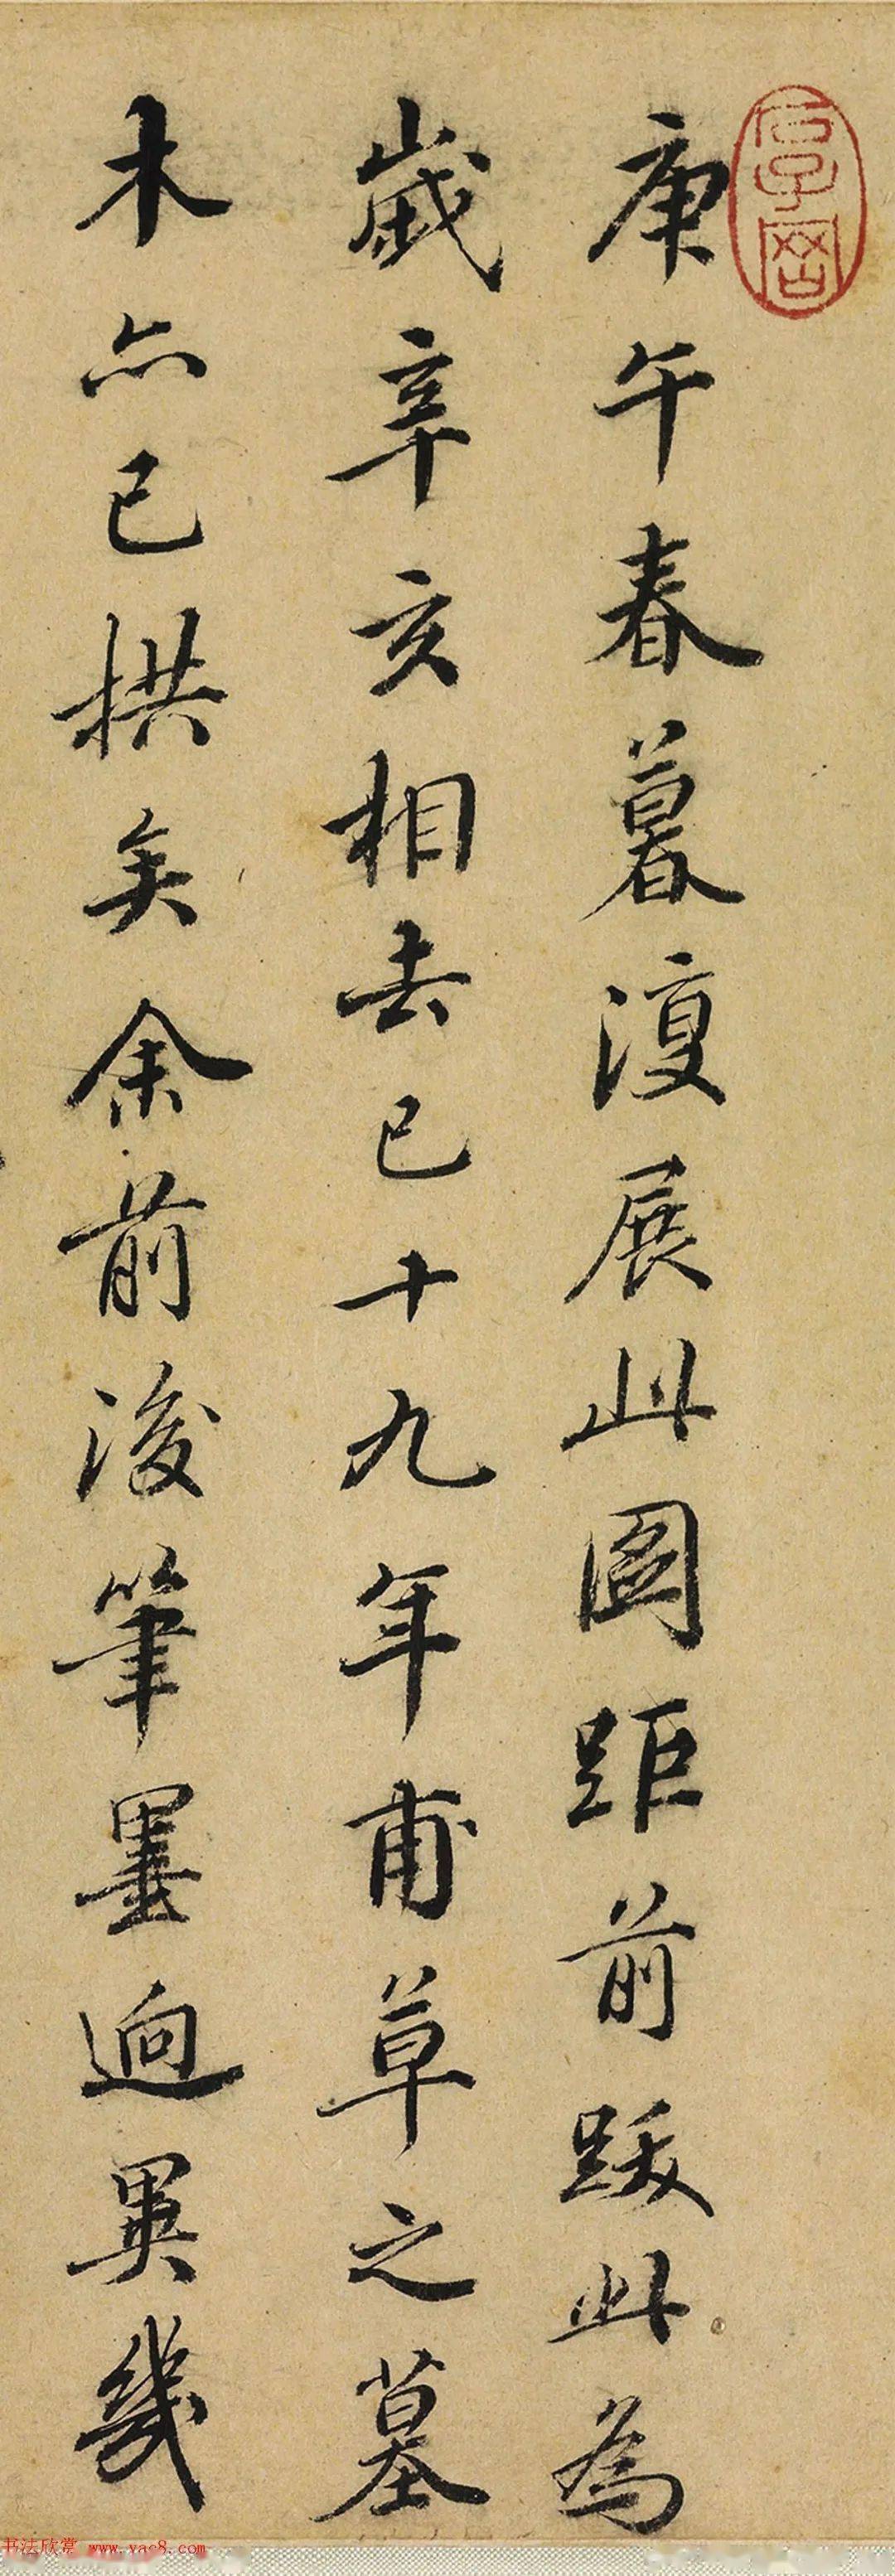 庚午春暮復展此圖距前跋此為
歲辛亥相去已十九年甫草之墓
木亦已拱矣余前後筆墨迥異幾
书法欣赏 www.yac8.com